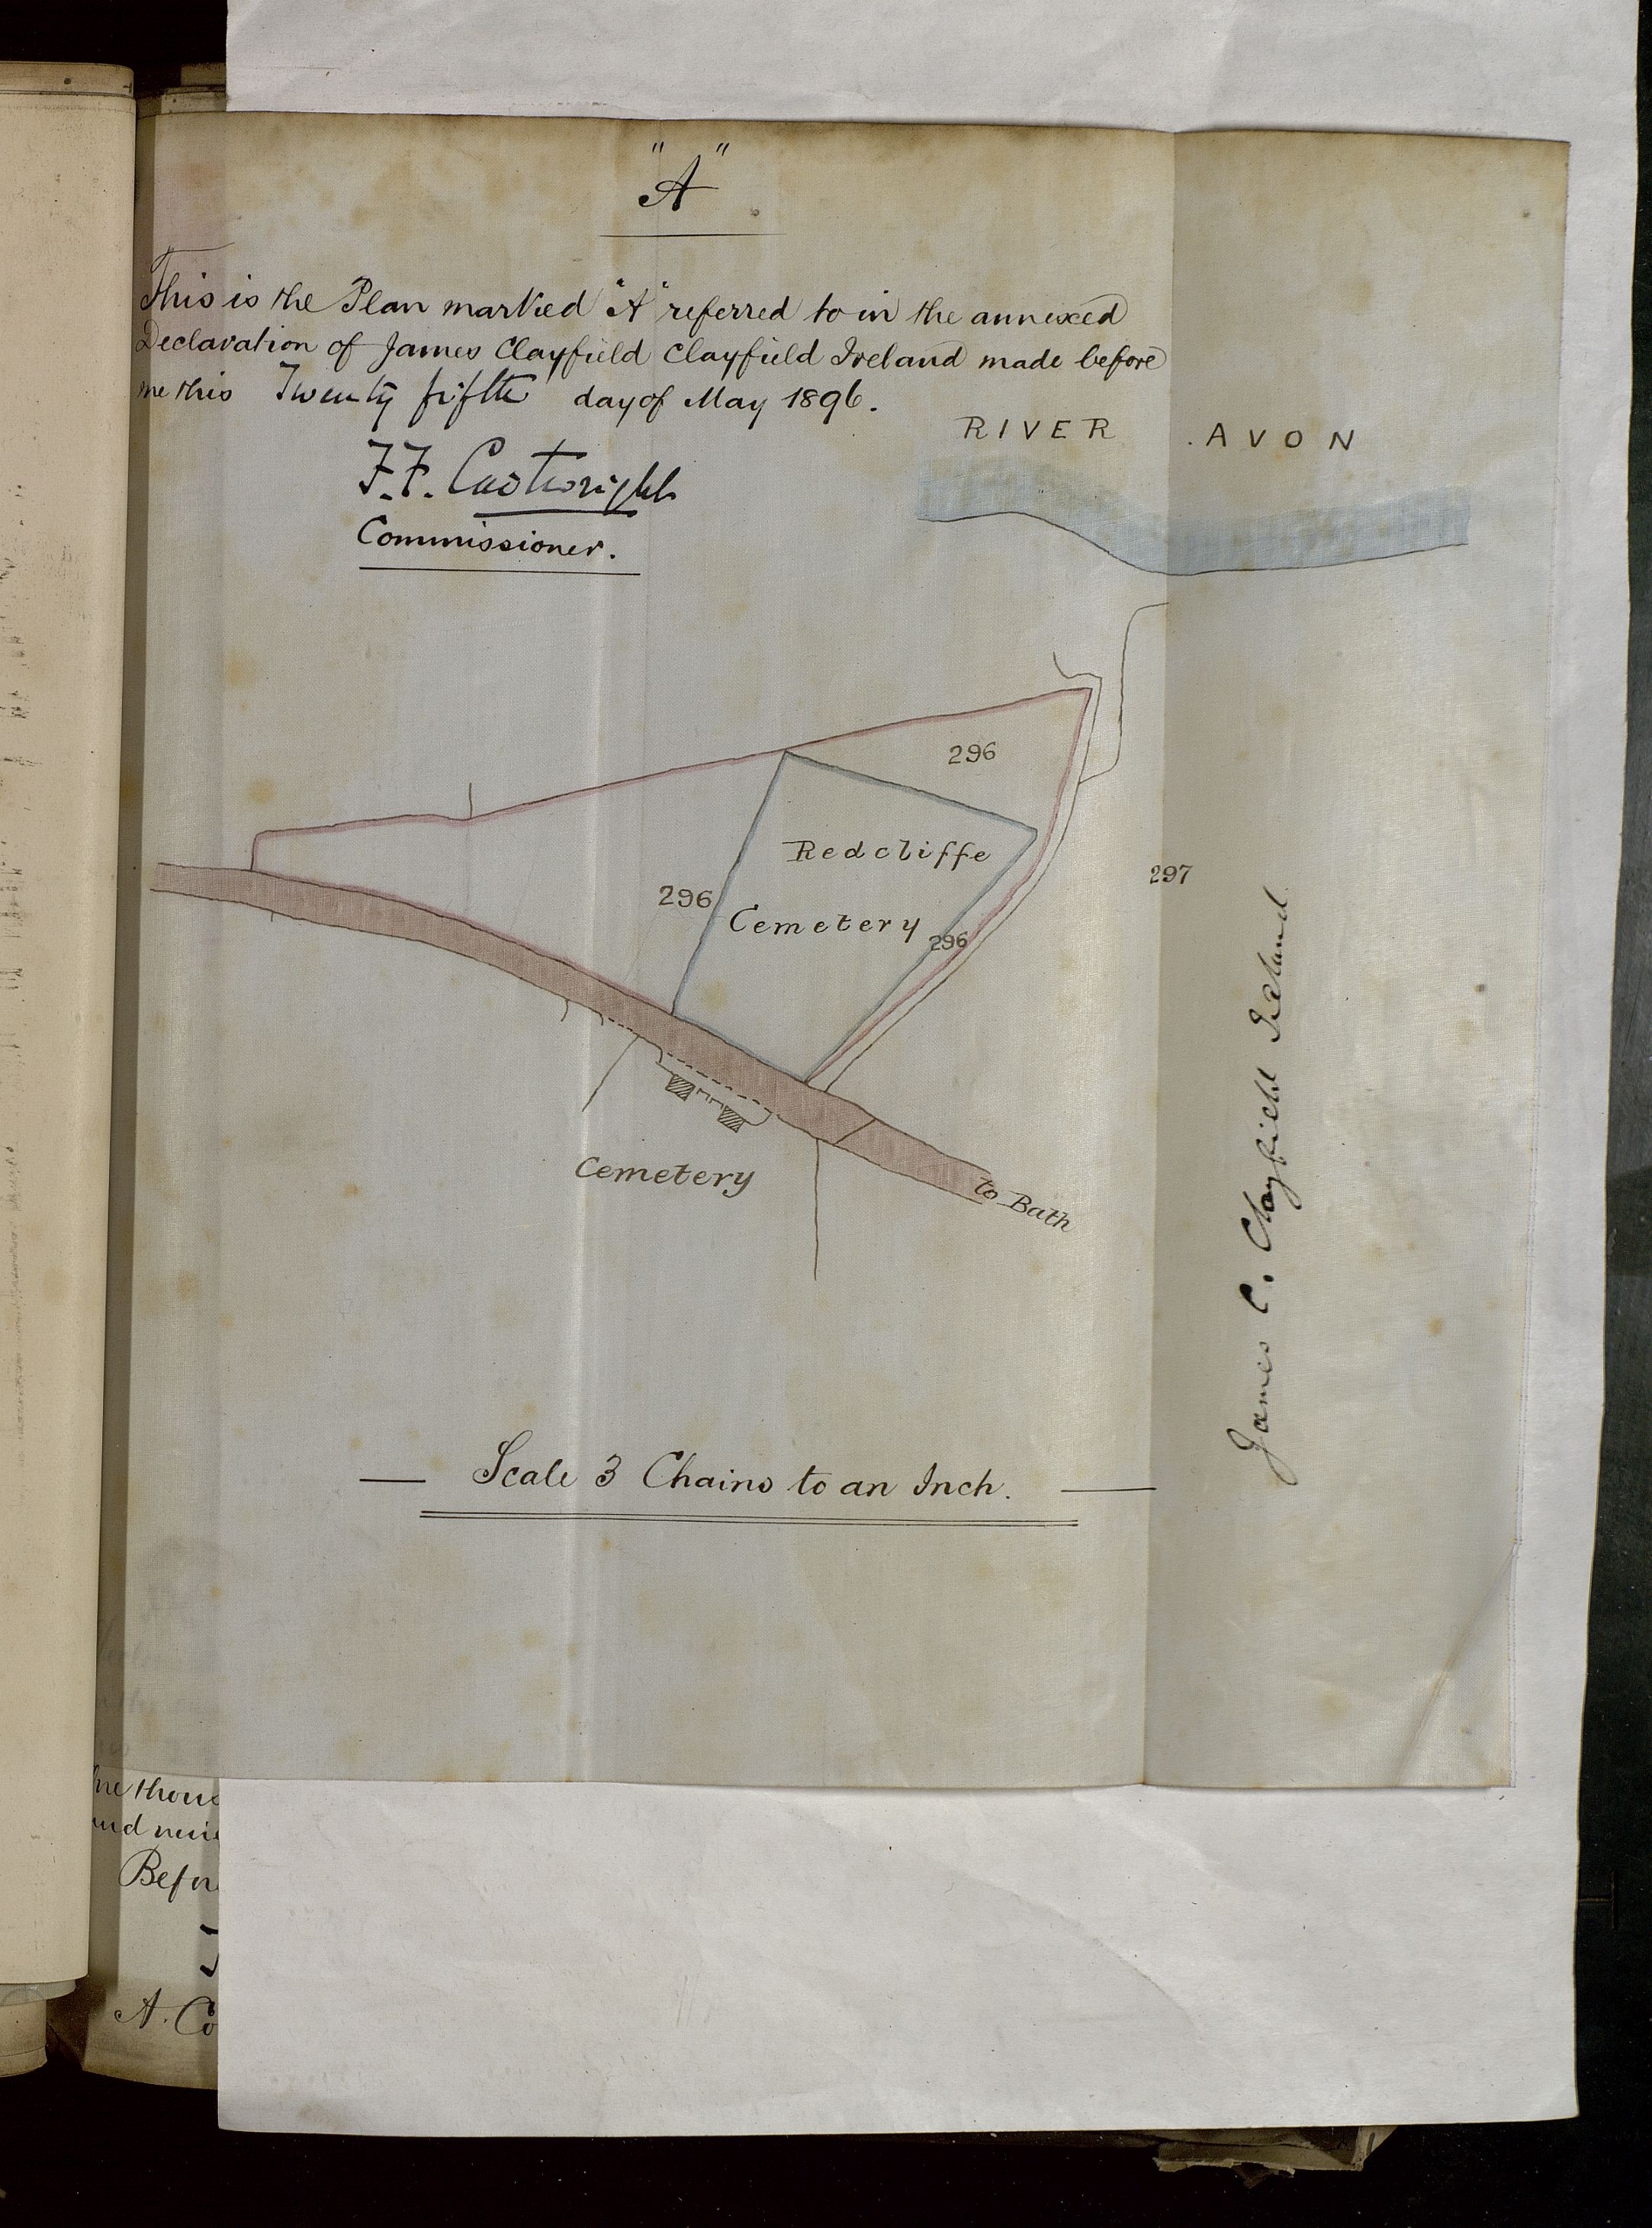 "A"
This is the Plan marked "A" referred to in the annexed
Declaration of James Clayfield Clayfield Ireland made before
me this Twenty fifth day of May 1896.
F.F. Cartwright
Commissioner.
RIVER AVON
296
Redcliffe
296
297
Cemetery
296
Cemetery
to Bath
James C. Clayfield Ireland
Scale 3 Chains to an Inch.
Befor
A. Co